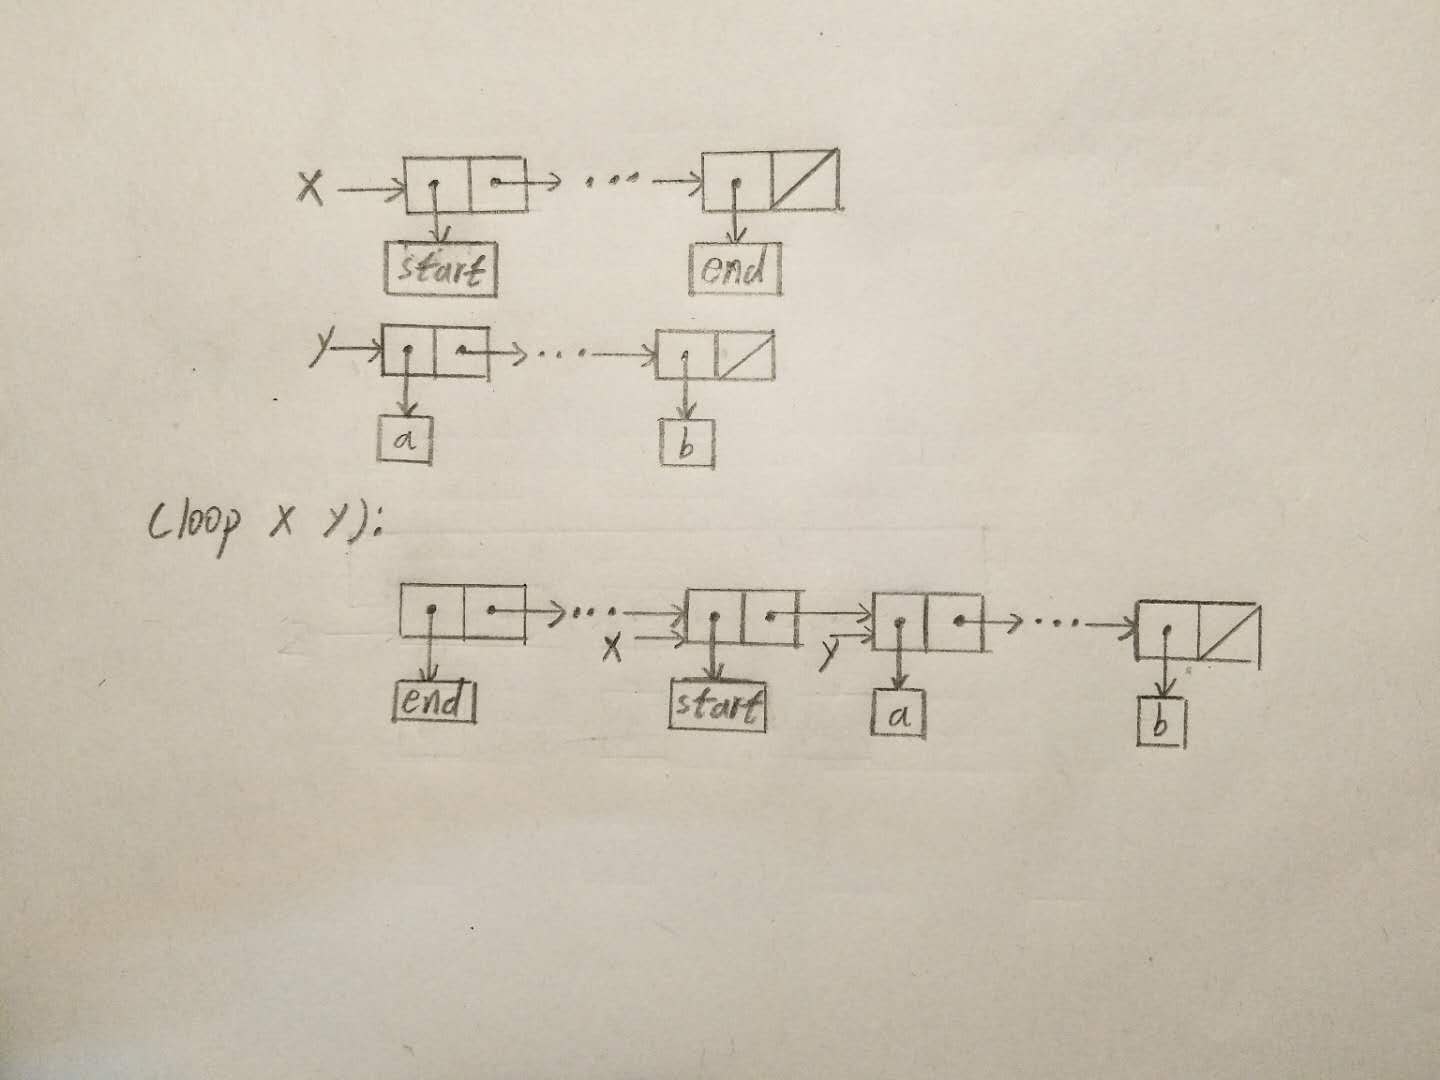 X
start end
y
a b
(loop X y):
X y
end start a b